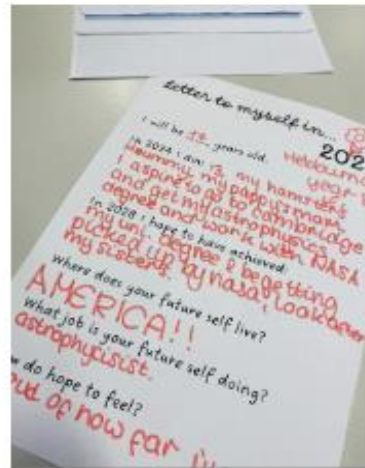 letter to myself in...
202
I will be years old.
year
In 2024 i am: my hamster's
mummy, my puppy's mam
I aspire to go to cambridge
and get my astrophysics
degree and work with NASA
In 2028 I hope to have achieved:
my uni degree & be getting
picked up by nasa, look after
my sisters
Where does your future self live?
AMERICA!!
What job is your future self doing?
astrophycisist.
do hope to feel?
of how far